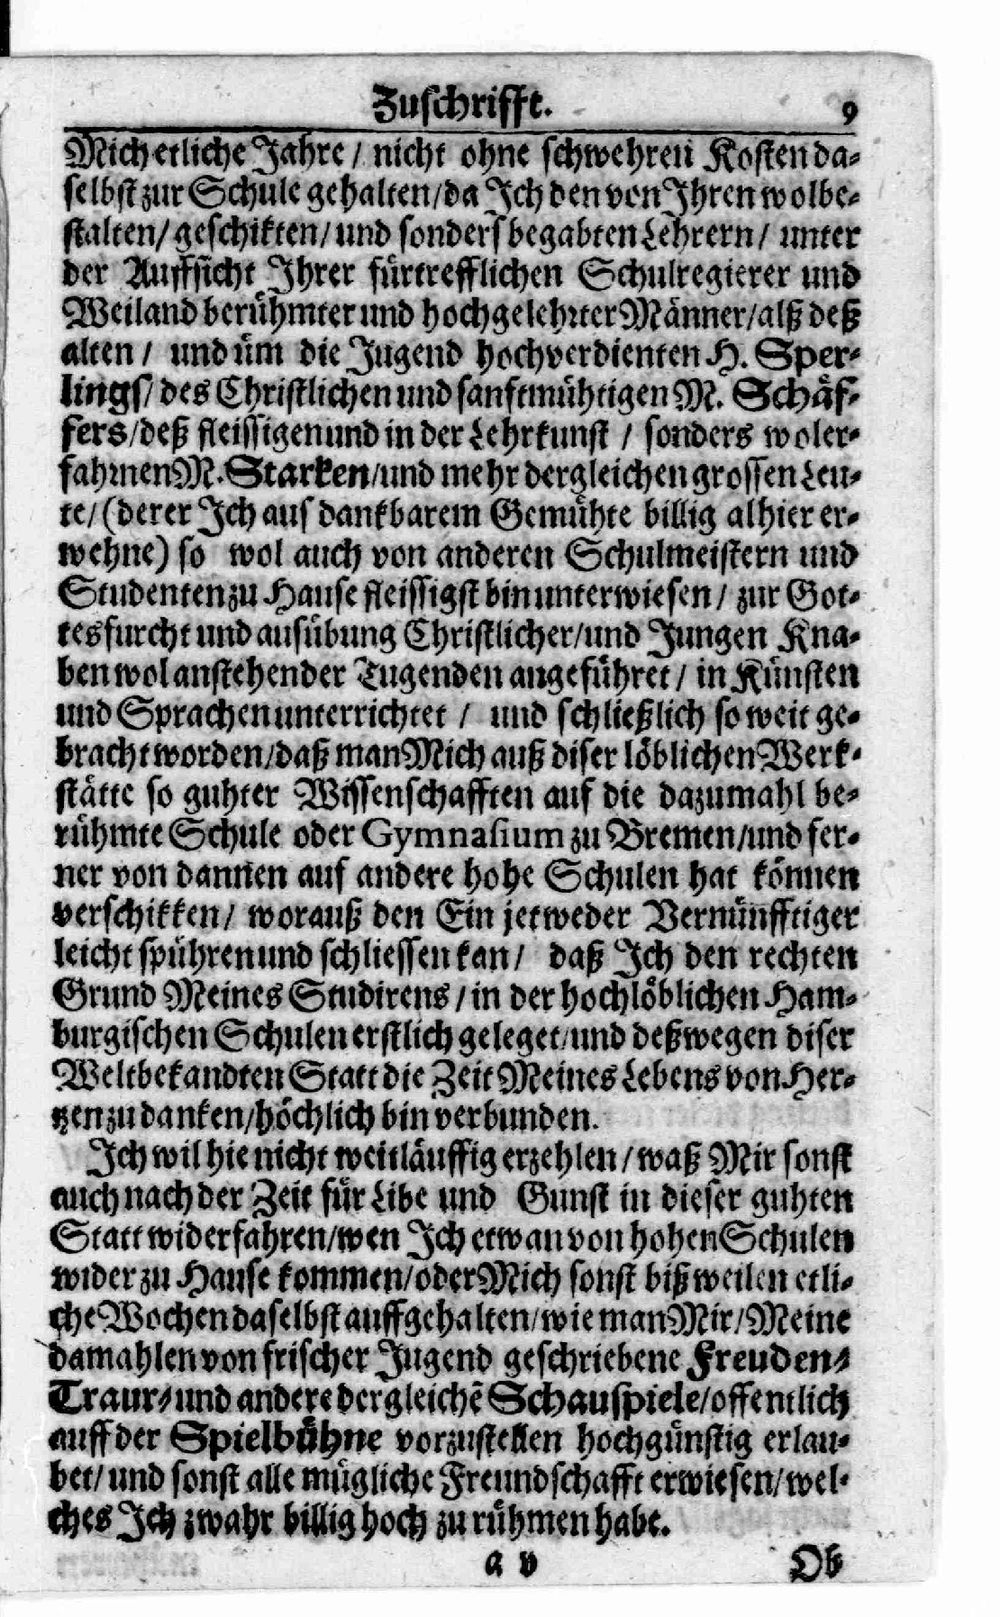 Zuschrifft. 9
Mich etliche Jahre / nicht ohne schwehren Kosten da-
selbst zur Schule gehalten / da Ich den von Ihren wolbe-
stalten / geschikten / und sonders begabten Lehrern / unter
der Auffsicht Ihrer fürtrefflichen Schulregierer und
Weiland berühmter und hochgelehrter Männer / alß deß
alten / und üm die Jugend hochverdienten H. Sper-
lings / des Christlichen und sanftmühtigen M. Schäf-
fers / deß fleissigen und in der Lehrkunst / sonders woler-
fahrnen M. Starken / und mehr dergleichen grossen Leu-
te / (derer Ich aus dankbarem Gemühte billig alhier er-
wehne) so wol auch von anderen Schulmeistern und
Studenten zu Hause fleissigst bin unterwiesen / zur Got-
tesfurcht und ausübung Christlicher / und Jungen Kna-
ben wolanstehender Tugenden angeführet / in Künsten
und Sprachen unterrichtet / und schließlich so weit ge-
bracht worden / daß man Mich auß diser löblichen Werk-
stätte so guhter Wissenschafften auf die dazumahl be-
rühmte Schule oder Gymnasium zu Bremen / und fer-
ner von dannen auf andere hohe Schulen hat können
verschikken / worauß den Ein jetweder Vernünfftiger
leicht spühren und schliessen kan / daß Ich den rechten
Grund Meines Studirens / in der hochlöblichen Ham-
burgischen Schulen erstlich geleget / und deßwegen diser
Weltbekandten Statt die Zeit Meines Lebens von Her-
tzen zu danken / höchlich bin verbunden.
Ich wil hie nicht weitläuffig erzehlen / waß Mir sonst
auch nach der Zeit für Libe und Gunst in dieser guhten
Statt widerfahren / wen Ich etwan von hohen Schulen
wider zu Hause kommen / oder Mich sonst bißweilen etli-
che Wochen daselbst auffgehalten / wie man Mir / Meine
damahlen von frischer Jugend geschriebene Freuden-
Traur- und andere dergleichẽ Schauspiele / offentlich
auff der Spielbühne vorzustellen hochgünstig erlau-
bet / und sonst alle mügliche Freundschafft erwiesen / wel-
ches Ich zwahr billig hoch zu rühmen habe.
a v Ob